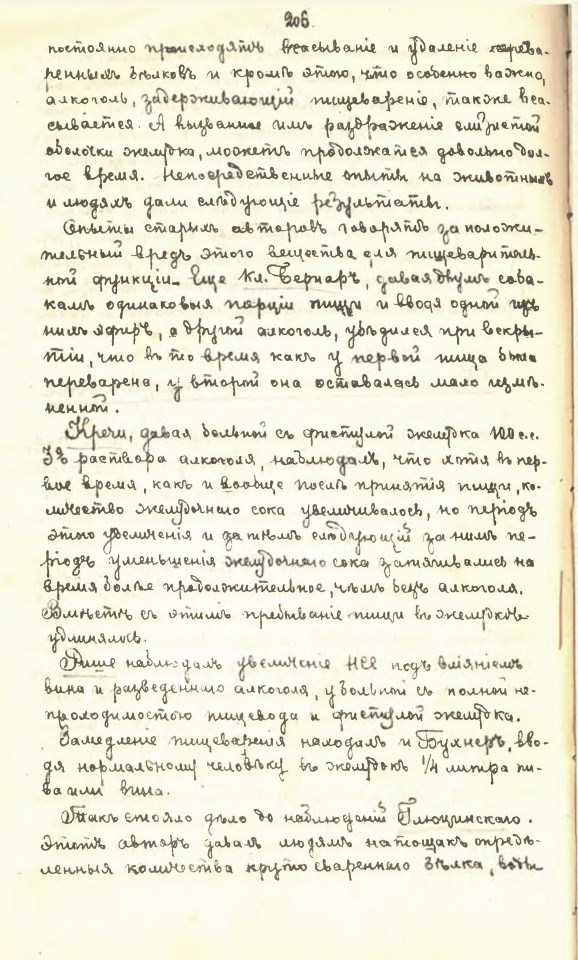 206.
постоянно происходятъ всасываніе и удаленіе перева-
ренныхъ бѣлковъ и кромѣ этого, что особенно важно,
алкоголь, задерживающій пищевареніе, также вса-
сывается. А вызванное имъ раздраженіе слизистой
оболочки желудка, можетъ продолжатся довольно дол-
гое время. Непосредственные опыты на животныхъ
и людяхъ дали слѣдующіе результаты.
Опыты старыхъ авторовъ говорятъ за положи-
тельный вредъ этого вещества для пищеваритель-
ной функціи. Еще Кл. Бернаръ, давая двумъ соба-
камъ одинаковыя порціи пищи и вводя одной изъ
нихъ эфиръ, а другой алкоголь, убѣдился при вскры-
тіи, что въ то время какъ у первой пища была
переварена, у второй она оставалась мало измѣ-
ненной.
Кречи, давая больной съ фистулой желудка 100 с.с.
3% раствора алкоголя, наблюдалъ, что хотя въ пер-
вое время, какъ и вообще послѣ принятія пищи, ко-
личество желудочнаго сока увеличивалось, но періодъ
этого увеличенія и затѣмъ слѣдующій за нимъ пе-
ріодъ уменьшенія желудочнаго сока затягивались на
время болѣе продолжительное, чѣмъ безъ алкоголя.
Вмѣстѣ съ этимъ пребываніе пищи въ желудкѣ
удлинялось.
Рише наблюдалъ увеличеніе HCl подъ вліяніемъ
вина и разведеннаго алкоголя, у больной съ полной не-
проходимостью пищевода и фистулой желудка.
Замедленіе пищеваренія находилъ и Бухнеръ, вво-
дя нормальному человѣку въ желудокъ 1/4 литра пи-
ва или вина.
Такъ стояло дѣло до наблюденій Глюцинскаго.
Этотъ авторъ давалъ людямъ натощакъ опредѣ-
ленныя количества круто свареннаго бѣлка, воды